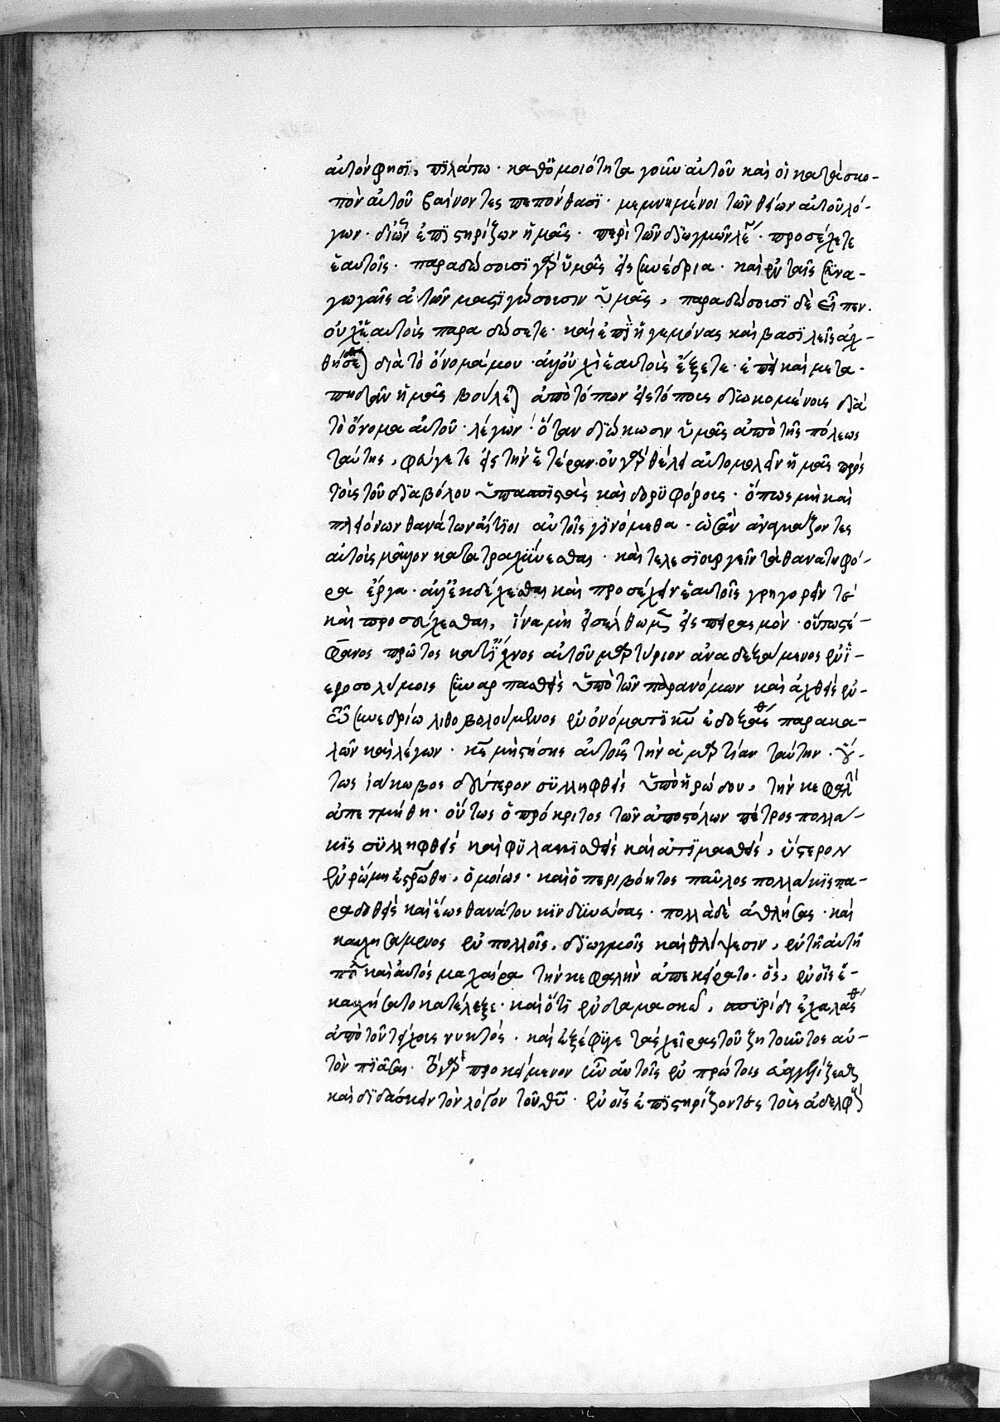 αὐτόν φησϊ, πϊλάτω · καθ' ὁμοιότητα γοῦν αὐτοῦ καὶ οἱ κατὰ σκο-
πὸν αὐτοῦ βαίνοντες πεπόνθασϊ · μεμνημένοι τῶν θείων αὐτοῦ λό-
γων · δι' ὧν ἐπϊστηρίζων ἡμᾶς · περὶ τῶν δϊωγμῶν λέγει · προσέχετε
ἑαυτοῖς · παραδώσουσϊ γὰρ ὑμᾶς εἰς συνέδρια · καὶ ἐν ταῖς συνα-
γωγαῖς αὐτῶν μαστϊγώσουσιν ὑμᾶς, παραδώσουσϊ δὲ εἶπεν ·
οὐχ ἑαυτοὺς παραδώσετε · καὶ ἐπὶ ἡγεμόνας καὶ βασϊλεῖς ἀχ-
θήσεσθε διὰ τὸ ὄνομά μου · ἀλλ' οὐχὶ ἑαυτοὺς ἄξετε · ἐπεὶ καὶ μετα-
πηδᾶν ἡμᾶς βούλεται ἀπὸ τόπων εἰς τόπους δϊωκομένους διὰ
τὸ ὄνομα αὐτοῦ · λέγων · ὅταν δϊώκωσιν ὑμᾶς ἀπὸ τῆς πόλεως
ταύτης, φεύγετε εἰς τὴν ἑτέραν · οὐ γὰρ θέλει αὐτομολεῖν ἡμᾶς πρὸς
τοὺς τοῦ δϊαβόλου ὑπασπϊστὰς καὶ δορϋφόρους · ὅπως μὴ καὶ
πλειόνων θανάτων αἴτϊοι αὐτοῖς γϊνόμεθα · ὡσὰν ἀναγκάζοντες
αὐτοὺς μᾶλλον κατατραχύνεσθαι · καὶ τελεσϊουργεῖν τὰ θανατηφό-
ρα ἔργα · ἀλλ' ἐκδέχεσθαι καὶ προσέχειν ἑαυτοῖς γρηγορεῖν τε
καὶ προσεύχεσθαι, ἵνα μὴ εἰσέλθωμεν εἰς πειρασμόν · οὕτω στέ-
φανος πρῶτος κατ' ἴχνος αὐτοῦ μαρτύριον ἀναδεξάμενος ἐν ἱ-
εροσολύμοις συναρπασθεὶς ὑπὸ τῶν παρανόμων καὶ ἀχθεὶς ἐν
τῶ συνεδρίω λιθοβολούμενος ἐν ὀνόματϊ κυ ἐδοξάσθη παρακα-
λῶν καὶ λέγων · κε μὴ στήσης αὐτοῖς τὴν ἁμαρτίαν ταύτην · οὕ-
τως ἰάκωβος δεύτερον συλληφθεὶς ὑπὸ ἡρώδου, τὴν κεφαλὴν
ἀπετμήθη · οὕτως ὁ πρόκριτος τῶν ἀποστόλων πέτρος πολλά-
κϊς συλληφθεὶς καὶ φυλακϊσθεὶς καὶ ἀτϊμασθεὶς, ὕστερον
ἐν ῥώμη ἐσταυρώθη · ὁμοίως · καὶ ὁ περιβόητος παῦλος πολλάκϊς πα-
ραδοθεὶς καὶ ἕως θανάτου κϊνδυνεύσας · πολλὰ δὲ ἀθλήσας · καὶ
καυχησάμενος ἐν πολλοῖς, δϊωγμοῖς καὶ θλίψεσιν, ἐν τῆ αὐτῆ
πόλει καὶ αὐτὸς μαχαίρα τὴν κεφαλὴν ἀπεκείρατο · ὃς, ἐν οἷς ἐ-
καυχήσατο κατέληξε · καὶ ὅτϊ ἐν δαμασκῶ, σπυρίδι ἐχαλάσθη
ἀπὸ τοῦ τείχους νυκτός · καὶ ἐξέφυγε τὰς χεῖρας τοῦ ζητοῦντος αὐ-
τὸν πϊᾶσαι · ἦν γὰρ προκείμενον αὐτοῖς ἐν πρώτοις εὐαγγελίζεσθαι
καὶ δϊδάσκειν τὸν λόγον τοῦ θυ · ἐν οἷς ἐπϊστηρίζοντες τοὺς ἀδελφοὺς